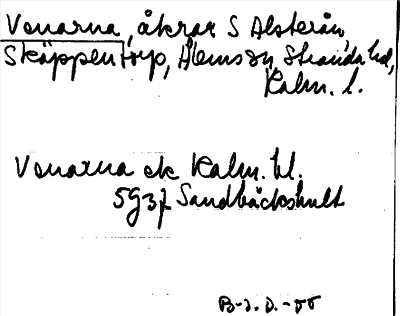 Venarna, åkrar S Alsterån,
Skäppentorp, Ålems sn, Stranda hd,
Kalm. l.
Venarna ek Kalm. bl.
5937 Sandbäckshult
B-J. D. -55